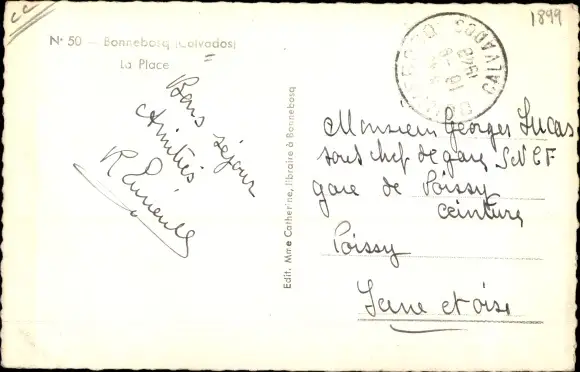 1899
N° 50 — Bonnebosq (Calvados)
La Place
Bons séjour
Amitiés
Edit. Mme Catherine, libraire à Bonnebosq
CALVADOS
Monsieur Georges Lucas
sous chef de gare SNCF
gare de Poissy
ceinture
Poissy
Seine et oise